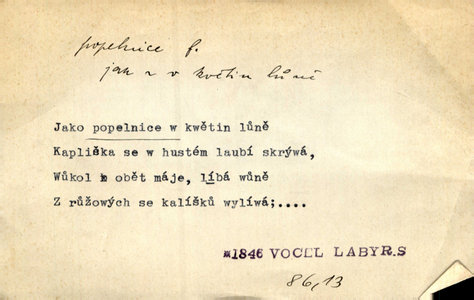 popelnice f.
jak v květin lůně
Jako popelnice w kwětin lůně
Kapliška se w hustém laubí skrýwá,
Wůkol obět máje, líbá wůně
Z růžowých se kalíšků wylíwá;....
*1846 VOCEL LABYR.S
86,13